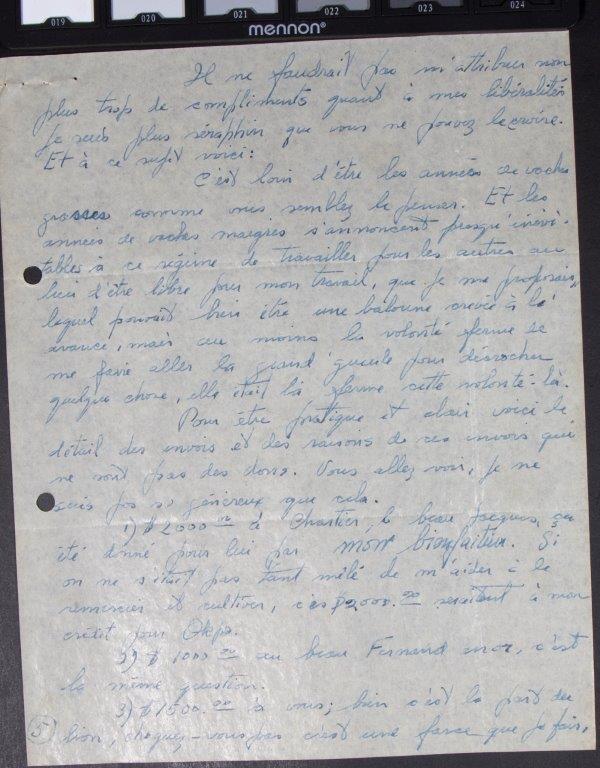 019 020 021 022 023 024
mennon®
Il ne faudrait pas m'attribuer non
plus trop de compliments quant à mes libéralités
Je suis plus séraphin que vous ne pouvez le croire.
Et à ce sujet voici:
C'est loin d'être les années de vaches
grasses comme vous semblez le penser. Et les
années de vaches maigres s'annoncent presqu'inévi-
tables à ce régime de travailler pour les autres au
lieu d'être libre pour mon travail, que je me proposais,
lequel pouvait bien être une baloune crevée à l'
avance, mais au moins la volonté ferme de
me faire aller la grand' gueule pour décrocher
quelque chose, elle était là ferme cette volonté-là.
Pour être pratique et clair voici le
détail des envois et des raisons de ces envois qui
ne sont pas des dons. Vous allez voir, je ne
suis pas si généreux que cela.
1) $2000.00 à Chartier, le beau Jacques, ça
été donné pour lui par mon bienfaiteur. Si
on ne s'était pas tant mêlé de m'aider à le
remercier et cultiver, ces $2,000.00 seraient à mon
crédit pour
2) $1000.00 au beau Fernand c'est
la même question.
3) $1500.00 à vous; bien c'est la part du
lion, choquez-vous pas c'est une farce que je fais,
5